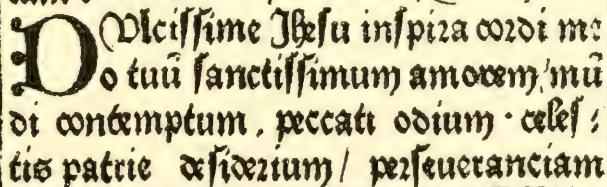 DUlciſſime Jheſu inſpira cordi me:
o tuū ſanctiſſimum amorem/mū
di contemptum . peccati odium · celeſ:
tis patrie deſiderium/ perſeueranciam